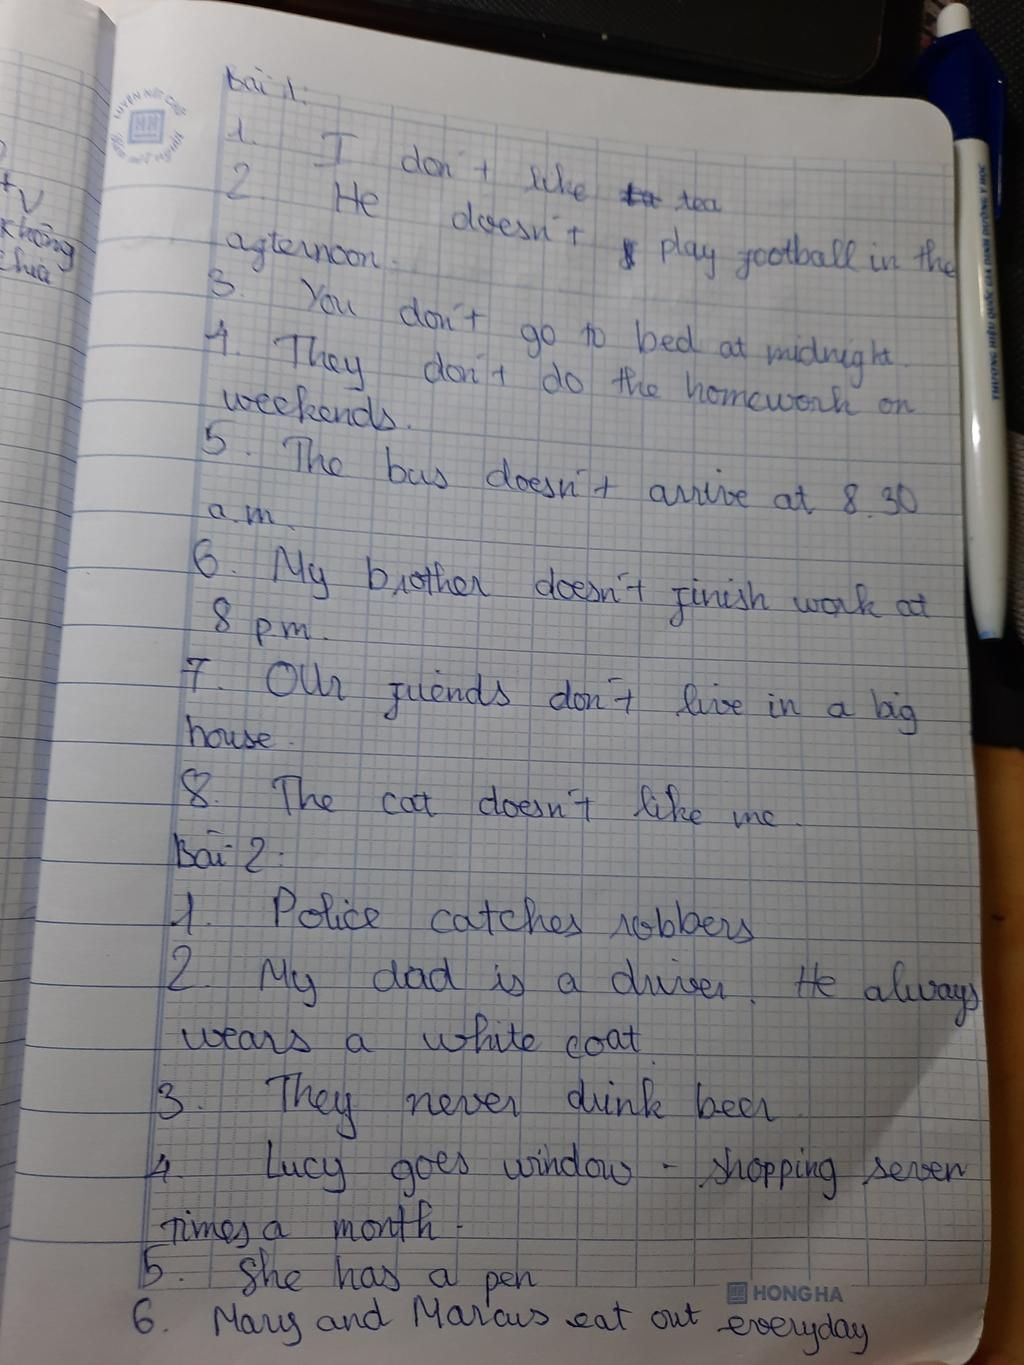 Bài 1:
1. I don't like tea
2. He doesn't play football in the
afternoon.
3. You don't go to bed at midnight.
4. They don't do the homework on
weekends.
5. The bus doesn't arrive at 8.30
a.m.
6. My brother doesn't finish work at
8 pm.
7. Our friends don't live in a big
house.
8. The cat doesn't like me.
Bài 2:
1. Police catches robbers
2. My dad is a driver. He always
wears a white coat.
3. They never drink beer
4. Lucy goes window - shopping seven
times a month.
5. She has a pen
HONG HA
6. Mary and Marcus eat out everyday
+ V
không
chia
THƯƠNG HIỆU QUỐC GIA DINH DƯỠNG Y HỌC
LUYỆN NÉT CHỮ